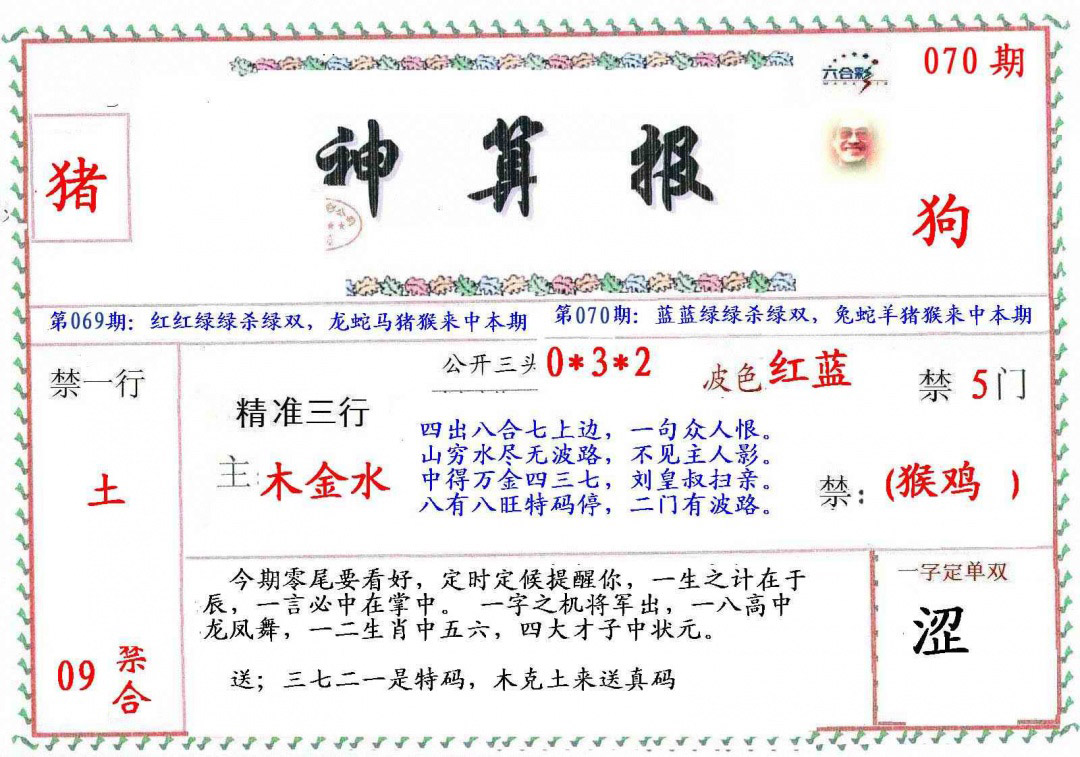 070 期
六合彩
神算报
猪
狗
第069期：红红绿绿杀绿双，龙蛇马猪猴来中本期
第070期：蓝蓝绿绿杀绿双，兔蛇羊猪猴来中本期
禁一行
土
09 禁合
公开三头 0*3*2
波色 红蓝
禁 5 门
精准三行
主: 木金水
四出八合七上边，一句众人恨。
山穷水尽无波路，不见主人影。
中得万金四三七，刘皇叔扫亲。
八有八旺特码停，二门有波路。
禁: (猴鸡 )
今期零尾要看好，定时定候提醒你，一生之计在于
辰，一言必中在掌中。 一字之机将军出，一八高中
龙凤舞，一二生肖中五六，四大才子中状元。
送；三七二一是特码，木克土来送真码
一字定单双
涩